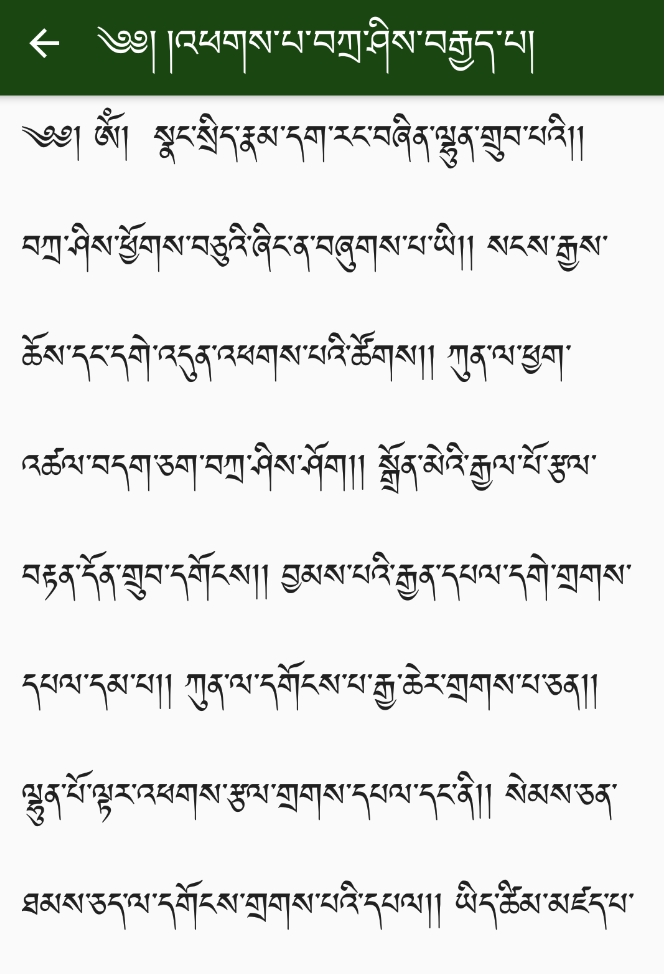 ༄༅། །འཕགས་པ་བཀྲ་ཤིས་བརྒྱད་པ།
༄༅། ཨོཾ། སྣང་སྲིད་རྣམ་དག་རང་བཞིན་ལྷུན་གྲུབ་པའི།།
བཀྲ་ཤིས་ཕྱོགས་བཅུའི་ཞིང་ན་བཞུགས་པ་ཡི།། སངས་རྒྱས་
ཆོས་དང་དགེ་འདུན་འཕགས་པའི་ཚོགས།། ཀུན་ལ་ཕྱག་
འཚལ་བདག་ཅག་བཀྲ་ཤིས་ཤོག།། སྒྲོན་མེའི་རྒྱལ་པོ་རྩལ་
བརྟན་དོན་གྲུབ་དགོངས།། བྱམས་པའི་རྒྱན་དཔལ་དགེ་གྲགས་
དཔལ་དམ་པ།། ཀུན་ལ་དགོངས་པ་རྒྱ་ཆེར་གྲགས་པ་ཅན།།
ལྷུན་པོ་ལྟར་འཕགས་རྩལ་གྲགས་དཔལ་དང་ནི།། སེམས་ཅན་
ཐམས་ཅད་ལ་དགོངས་གྲགས་པའི་དཔལ།། ཡིད་ཚིམ་མཛད་པ་